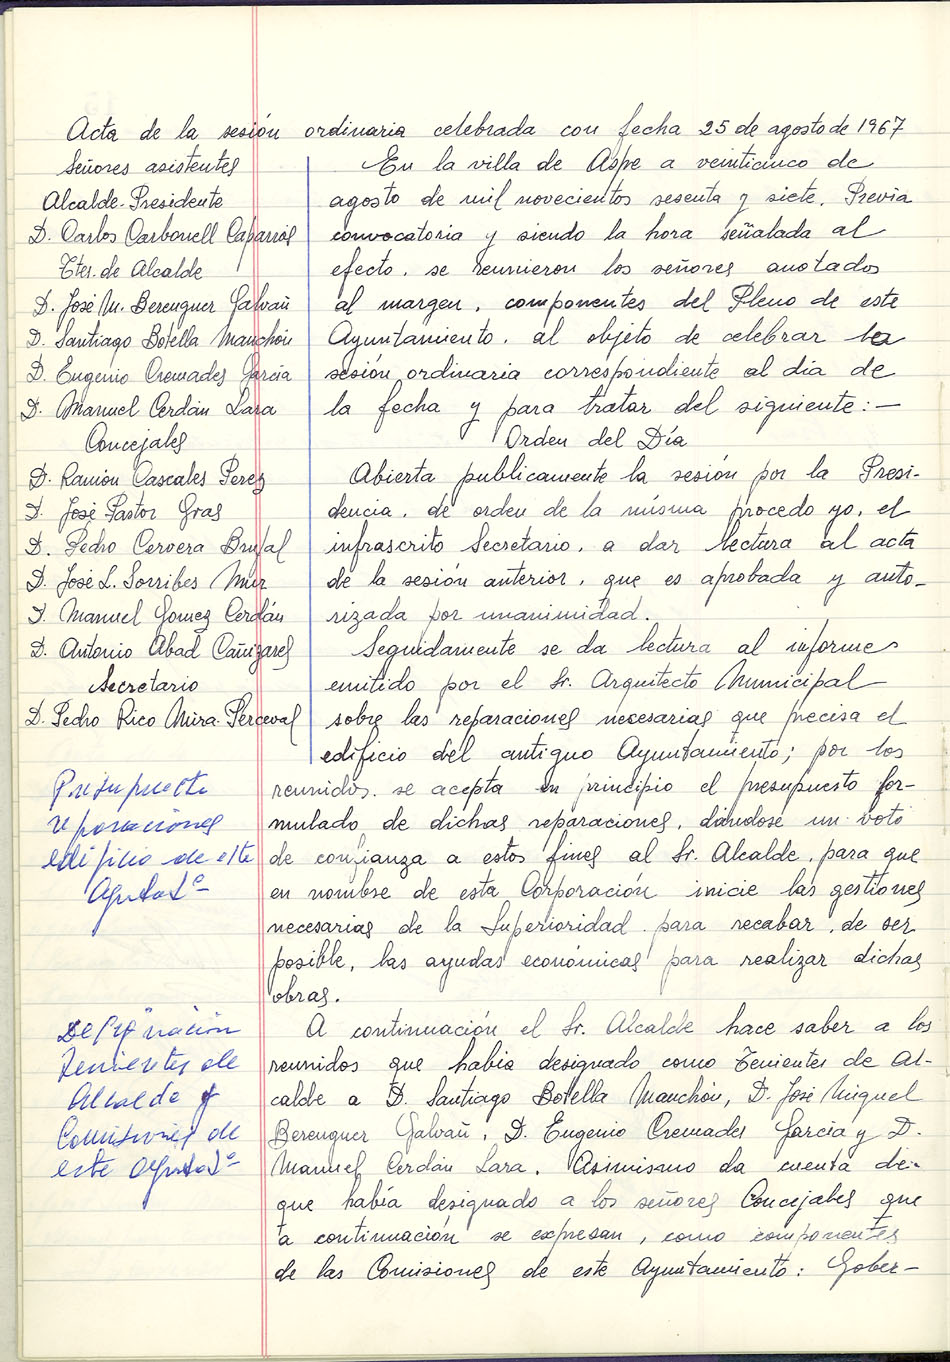 Acta de la sesión ordinaria celebrada con fecha 25 de agosto de 1967
Señores asistentes
Alcalde-Presidente
D. Carlos Carbonell Caparrós
Ttes. de Alcalde
D. José M. Berenguer Galvañ
D. Santiago Botella Manchón
D. Eugenio Cremades García
D. Manuel Cerdán Lara
Concejales
D. Ramón Cascales Perez
D. José Pastor Gras
D. Pedro Cervera Brufal
D. José L. Sorribes Mur
D. Manuel Gomez Cerdán
D. Antonio Abad Cañizares
Secretario
D. Pedro Rico Mira-Perceval
En la villa de Aspe a veinticinco de
agosto de mil novecientos sesenta y siete. Previa
convocatoria y siendo la hora señalada al
efecto, se reunieron los señores anotados
al margen, componentes del Pleno de este
Ayuntamiento, al objeto de celebrar la
sesión ordinaria correspondiente al día de
la fecha y para tratar del siguiente:—
Orden del Día
Abierta publicamente la sesión por la Presi-
dencia, de orden de la misma procedo yo, el
infrascrito Secretario, a dar lectura al acta
de la sesión anterior, que es aprobada y auto-
rizada por unanimidad.
Seguidamente se da lectura al informe
emitido por el Sr. Arquitecto Municipal
sobre las reparaciones necesarias que precisa el
edificio del antiguo Ayuntamiento; por los
Presupuesto
reparaciones
edificio de este
Ayuntº
reunidos, se acepta en principio el presupuesto for-
mulado de dichas reparaciones, dándose un voto
de confianza a estos fines al Sr. Alcalde, para que
en nombre de esta Corporación inicie las gestiones
necesarias de la Superioridad para recabar, de ser
posible, las ayudas económicas para realizar dichas
obras.
Designación
Tenientes de
Alcalde y
Comisiones de
este Ayuntº
A continuación el Sr. Alcalde hace saber a los
reunidos que había designado como Tenientes de Al-
calde a D. Santiago Botella Manchón, D. José Miguel
Berenguer Galvañ, D. Eugenio Cremades García y D.
Manuel Cerdán Lara. Asimismo da cuenta de
que había designado a los señores Concejales que
a continuación se expresan, como componentes
de las Comisiones de este Ayuntamiento: Gober-